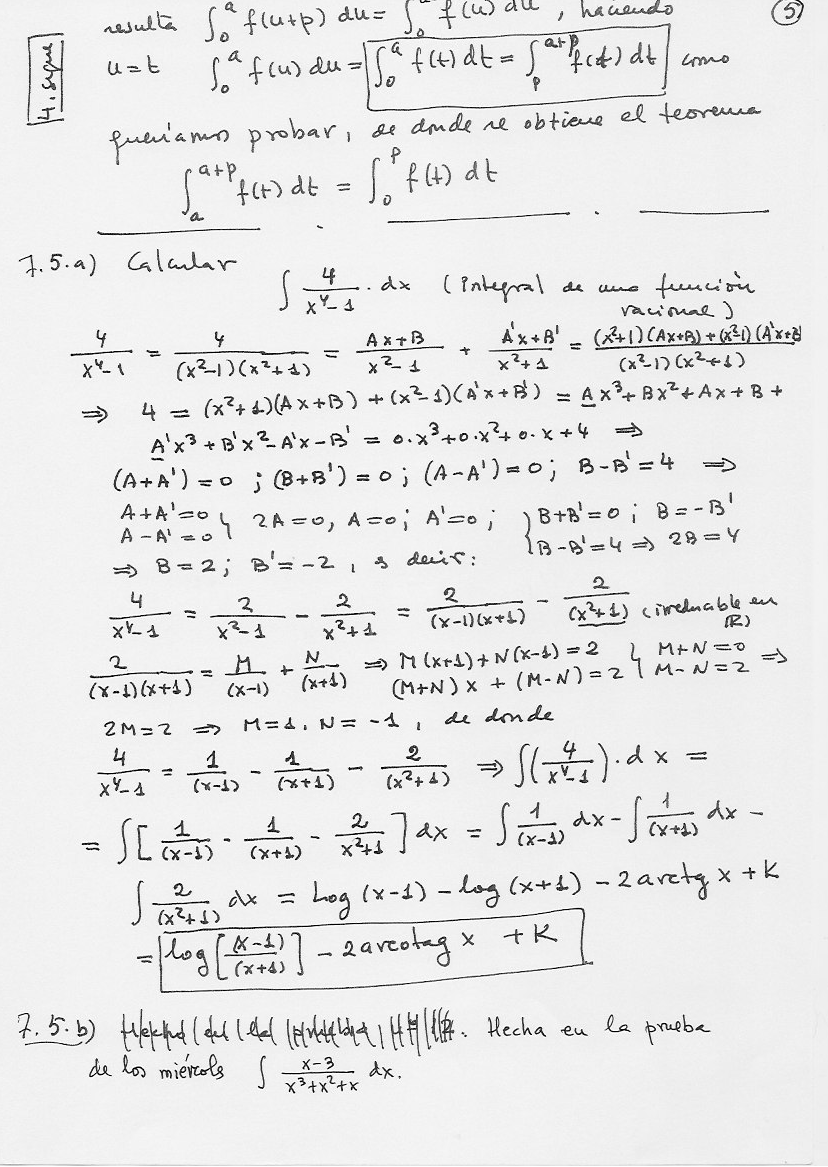 5
resulta ∫₀ᵃ f(u+p) du = ∫₀ᵃ f(u) du, haciendo
4. sigue
u=t ∫₀ᵃ f(u) du = ∫₀ᵃ f(t) dt = ∫ₚᵃ⁺ᵖ f(t) dt como
queriamos probar, de donde se obtiene el teorema
∫ₐᵃ⁺ᵖ f(t) dt = ∫₀ᵖ f(t) dt
7.5.a) Calcular ∫ 4/(x⁴-1) · dx (Integral de una función
racional)
4/(x⁴-1) = 4/((x²-1)(x²+1)) = (Ax+B)/(x²-1) + (A'x+B')/(x²+1) = ((x²+1)(Ax+B)+(x²-1)(A'x+B'))/((x²-1)(x²+1))
⇒ 4 = (x²+1)(Ax+B) + (x²-1)(A'x+B') = Ax³+Bx²+Ax+B+
A'x³+B'x²-A'x-B' = 0·x³+0·x²+0·x+4 ⇒
(A+A')=0 ; (B+B')=0; (A-A')=0; B-B'=4 ⇒
A+A'=0
A-A'=0 } 2A=0, A=0; A'=0; { B+B'=0; B=-B'
B-B'=4 ⇒ 2B=4
⇒ B=2; B'=-2, es decir:
4/(x⁴-1) = 2/(x²-1) - 2/(x²+1) = 2/((x-1)(x+1)) - 2/(x²+1) (irreducible en
ℝ)
2/((x-1)(x+1)) = M/(x-1) + N/(x+1) ⇒ M(x+1)+N(x-1)=2
(M+N)x + (M-N)=2 } M+N=0
M-N=2 ⇒
2M=2 ⇒ M=1, N=-1, de donde
4/(x⁴-1) = 1/(x-1) - 1/(x+1) - 2/(x²+1) ⇒ ∫(4/(x⁴-1))·dx =
= ∫[1/(x-1) - 1/(x+1) - 2/(x²+1)] dx = ∫ 1/(x-1) dx - ∫ 1/(x+1) dx -
∫ 2/(x²+1) dx = Log(x-1) - log(x+1) - 2 arctg x + K
= log[(x-1)/(x+1)] - 2 arcotag x + K
7.5.b) Hecha en la prueba
de los miércols ∫ (x-3)/(x³+x²+x) dx.